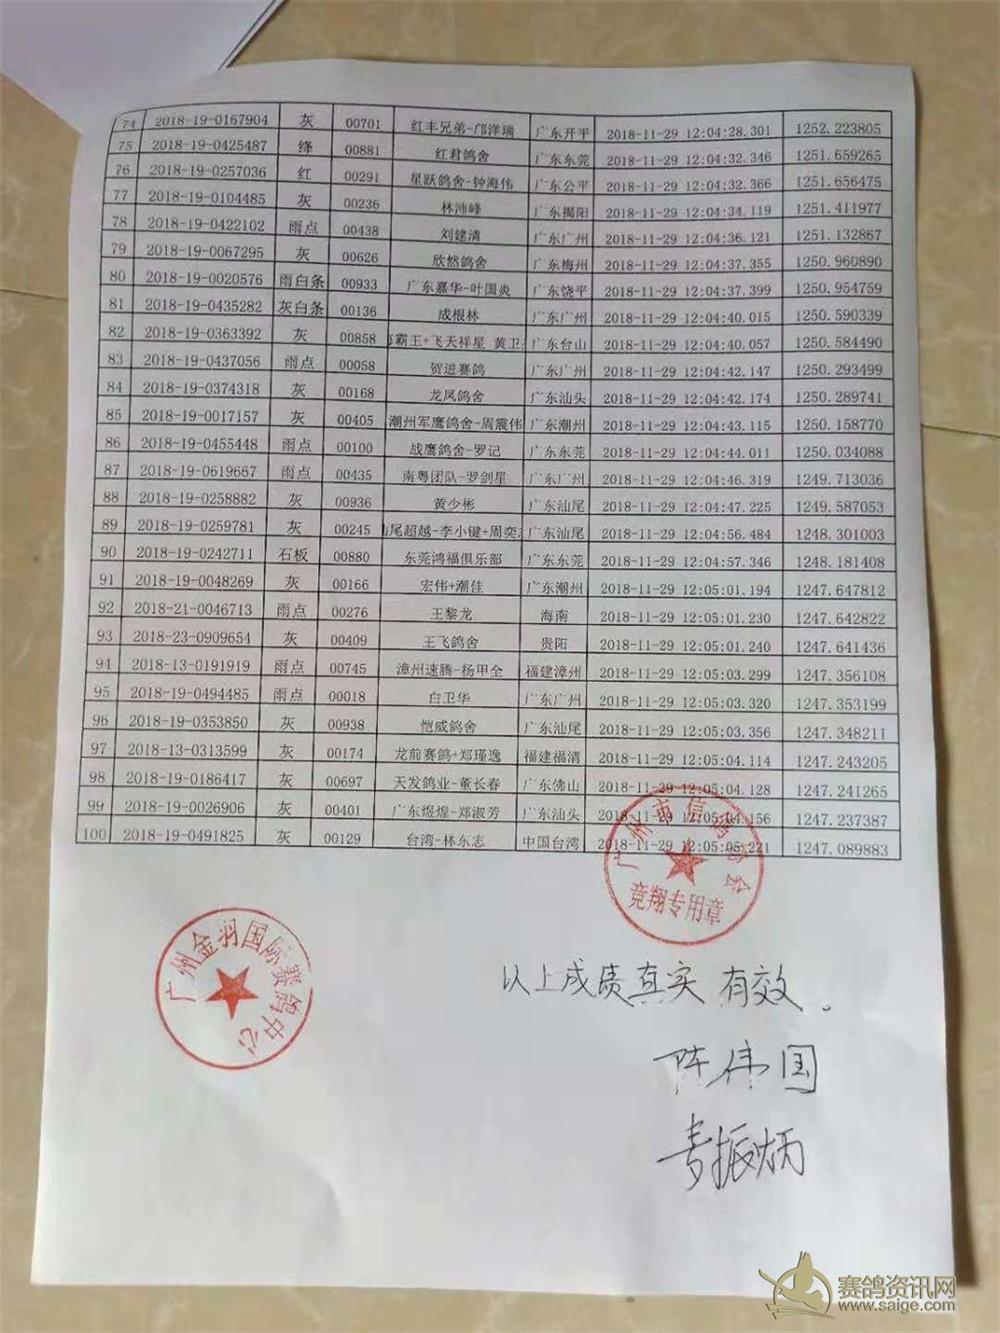 74 2018-19-0167904 灰 00701 红丰兄弟-邝洋瑞 广东开平 2018-11-29 12:04:28.301 1252.223805
75 2018-19-0425487 绛 00881 红君鸽舍 广东东莞 2018-11-29 12:04:32.346 1251.659265
76 2018-19-0257036 红 00291 星跃鸽舍-钟海伟 广东公平 2018-11-29 12:04:32.366 1251.656475
77 2018-19-0104485 灰 00236 林沛峰 广东揭阳 2018-11-29 12:04:34.119 1251.411977
78 2018-19-0422102 雨点 00438 刘建清 广东广州 2018-11-29 12:04:36.121 1251.132867
79 2018-19-0067295 灰 00626 欣然鸽舍 广东梅州 2018-11-29 12:04:37.355 1250.960890
80 2018-19-0020576 雨白条 00933 广东嘉华-叶国炎 广东饶平 2018-11-29 12:04:37.399 1250.954759
81 2018-19-0435282 灰白条 00136 成根林 广东广州 2018-11-29 12:04:40.015 1250.590339
82 2018-19-0363392 灰 00858 霸王+飞天祥星 黄卫 广东台山 2018-11-29 12:04:40.057 1250.584490
83 2018-19-0437056 雨点 00058 贺进赛鸽 广东广州 2018-11-29 12:04:42.147 1250.293499
84 2018-19-0374318 灰 00168 龙凤鸽舍 广东汕头 2018-11-29 12:04:42.174 1250.289741
85 2018-19-0017157 灰 00405 潮州军鹰鸽舍-周震伟 广东潮州 2018-11-29 12:04:43.115 1250.158770
86 2018-19-0455448 雨点 00100 战鹰鸽舍-罗记 广东东莞 2018-11-29 12:04:44.011 1250.034088
87 2018-19-0619667 雨点 00435 南粤团队-罗剑星 广东广州 2018-11-29 12:04:46.319 1249.713036
88 2018-19-0258882 灰 00936 黄少彬 广东汕尾 2018-11-29 12:04:47.225 1249.587053
89 2018-19-0259781 灰 00245 尾超越-李小键+周奕 广东汕尾 2018-11-29 12:04:56.484 1248.301003
90 2018-19-0242711 石板 00880 东莞鸿福俱乐部 广东东莞 2018-11-29 12:04:57.346 1248.181408
91 2018-19-0048269 灰 00166 宏伟+潮佳 广东潮州 2018-11-29 12:05:01.194 1247.647812
92 2018-21-0046713 雨点 00276 王黎龙 海南 2018-11-29 12:05:01.230 1247.642822
93 2018-23-0909654 灰 00409 王飞鸽舍 贵阳 2018-11-29 12:05:01.240 1247.641436
94 2018-13-0191919 雨点 00745 漳州速腾-杨甲全 福建漳州 2018-11-29 12:05:03.299 1247.356108
95 2018-19-0494485 雨点 00018 白卫华 广东广州 2018-11-29 12:05:03.320 1247.353199
96 2018-19-0353850 灰 00938 恺威鸽舍 广东汕尾 2018-11-29 12:05:03.356 1247.348211
97 2018-13-0313599 灰 00174 龙前赛鸽+郑瑾逸 福建福清 2018-11-29 12:05:04.114 1247.243205
98 2018-19-0186417 灰 00697 天发鸽业-董长春 广东佛山 2018-11-29 12:05:04.128 1247.241265
99 2018-19-0026906 灰 00401 广东煜煌-郑淑芳 广东汕头 2018-11-29 12:05:04.156 1247.237387
100 2018-19-0491825 灰 00129 台湾-林东志 中国台湾 2018-11-29 12:05:05.221 1247.089883
广州市信鸽协会
竞翔专用章
广州金羽国际赛鸽中心
以上成绩真实有效。
陈伟国
麦振炳
赛鸽资讯网
www.saige.com